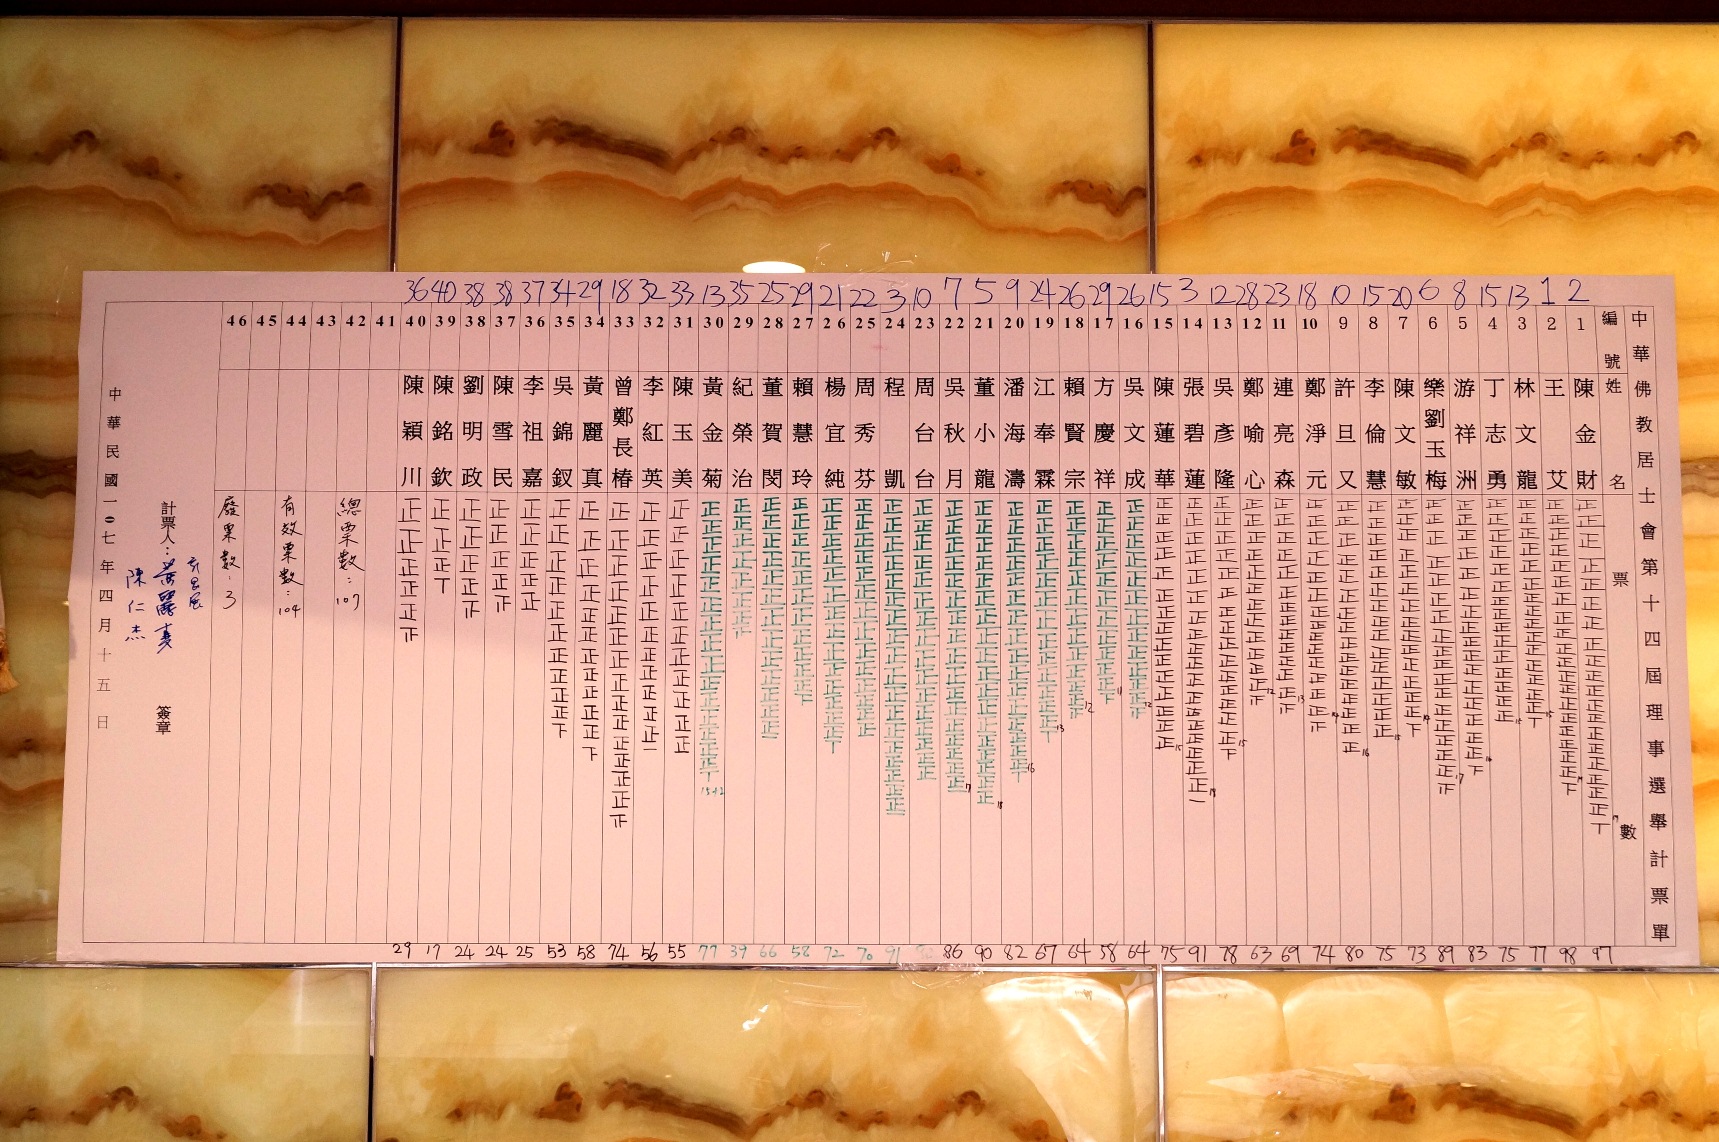 中華佛教居士會第十四屆理事選舉計票單
編號
姓名
票數
2 1 13 15 8 6 20 15 10 18 23 28 12 3 15 26 29 26 24 9 5 7 10 3 22 21 29 25 35 13 33 32 18 29 34 37 38 38 40 36
1 陳金財 97
2 王艾 98
3 林文龍 77
4 丁志勇 75
5 游祥洲 83
6 樂劉玉梅 89
7 陳文敏 73
8 李倫慧 75
9 許旦又 80
10 鄭淨元 74
11 連亮森 69
12 鄭喻心 63
13 吳彥隆 78
14 張碧蓮 91
15 陳蓮華 75
16 吳文成 64
17 方慶祥 58
18 賴賢宗 64
19 江奉霖 67
20 潘海濤 82
21 董小龍 90
22 吳秋月 86
23 周台台
24 程凱 91
25 周秀芬 70
26 楊宜純 72
27 賴慧玲 58
28 董賀閔 66
29 紀榮治 39
30 黃金菊 77
31 陳玉美 55
32 李紅英 56
33 曾鄭長椿 74
34 黃麗真 58
35 吳錦釵 53
36 李祖嘉 25
37 陳雪民 24
38 劉明政 24
39 陳銘欽 17
40 陳穎川 29
41
42
43
44
45
46
總票數:107
有效票數:104
廢票數:3
計票人: 簽章
陳仁杰
中華民國一0七年四月十五日